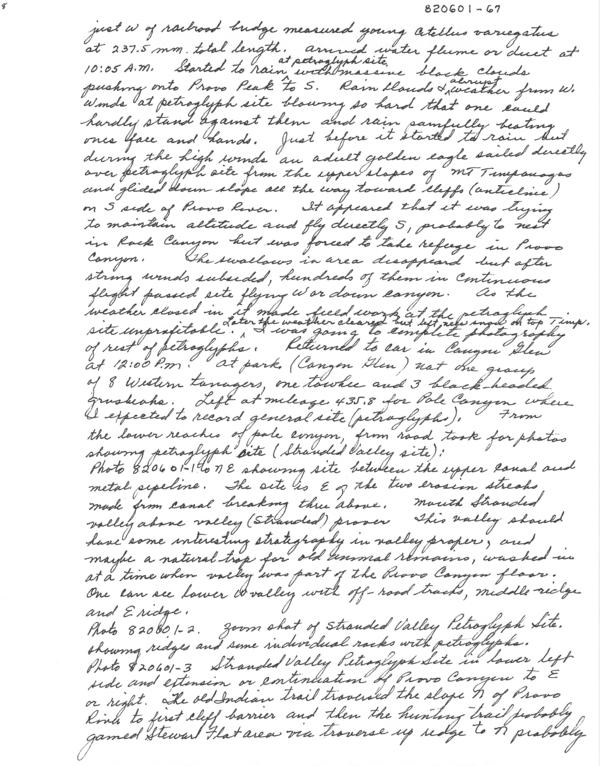 8
820601-67
just W of railroad bridge measured young Otellus variegatus
at 237.5 mm. total length. Arrived water flume or duct at
10:05 A.M. Started to rain at petroglyph site with massive black clouds
pushing onto Provo Peak to S. Rain clouds & abrupt weather from W.
Winds at petroglyph site blowing so hard that one could
hardly stand against them and rain painfully beating
ones face and hands. Just before it started to rain but
during the high winds an adult golden eagle sailed directly
over petroglyph site from the upper slopes of MT Timpanogas
and glided down slope all the way toward cliffs (anticline)
on S side of Provo River. It appeared that it was trying
to maintain altitude and fly directly S, probably to nest
in Rock Canyon but was forced to take refuge in Provo
Canyon. The swallows in area disappeard but after
strong winds subsided, hundreds of them in continuous
flight passed site flying W or down canyon. As the
weather closed in it made field work at the petroglyph
site unprofitable. Later the weather cleared but left new snow on top Timp.
I was going to complete photography
of rest of petroglyphs. Returned to car in Canyon Glen
at 12:00 P.M. At park (Canyon Glen) was one group
of 8 Western tanagers, one towhee and 3 black-headed
grosbeaks. Left at mileage 435.8 for Pole Canyon where
I expected to record general site (petroglyphs). From
the lower reaches of pole canyon, from road took for photos
showing petroglyph site (Stranded Valley site):
Photo 820601-1 to NE showing site between the upper canal and
metal pipeline. The site is E of the two erosion streaks
made from canal breaking thru above. Mouth Stranded
valley above valley (Stranded) proper This valley should
have some interesting stratigraphy in valley proper, and
maybe a natural trap for old animal remains, washed in
at a time when valley was part of the Provo Canyon floor.
One can see lower W valley with off-road tracks, middle ridge
and E ridge.
Photo 820601-2. Zoom shot of Stranded Valley Petroglyph Site.
showing ridges and some individual rocks with petroglyphs.
Photo 820601-3 Stranded Valley Petroglyph Site in lower left
side and extension or continuation of Provo Canyon to E
or right. The old Indian trail traversed the slope N of Provo
River to first cliff barrier and then the hunting trail probably
gained Stewart Flat area via traverse up ridge to N probably